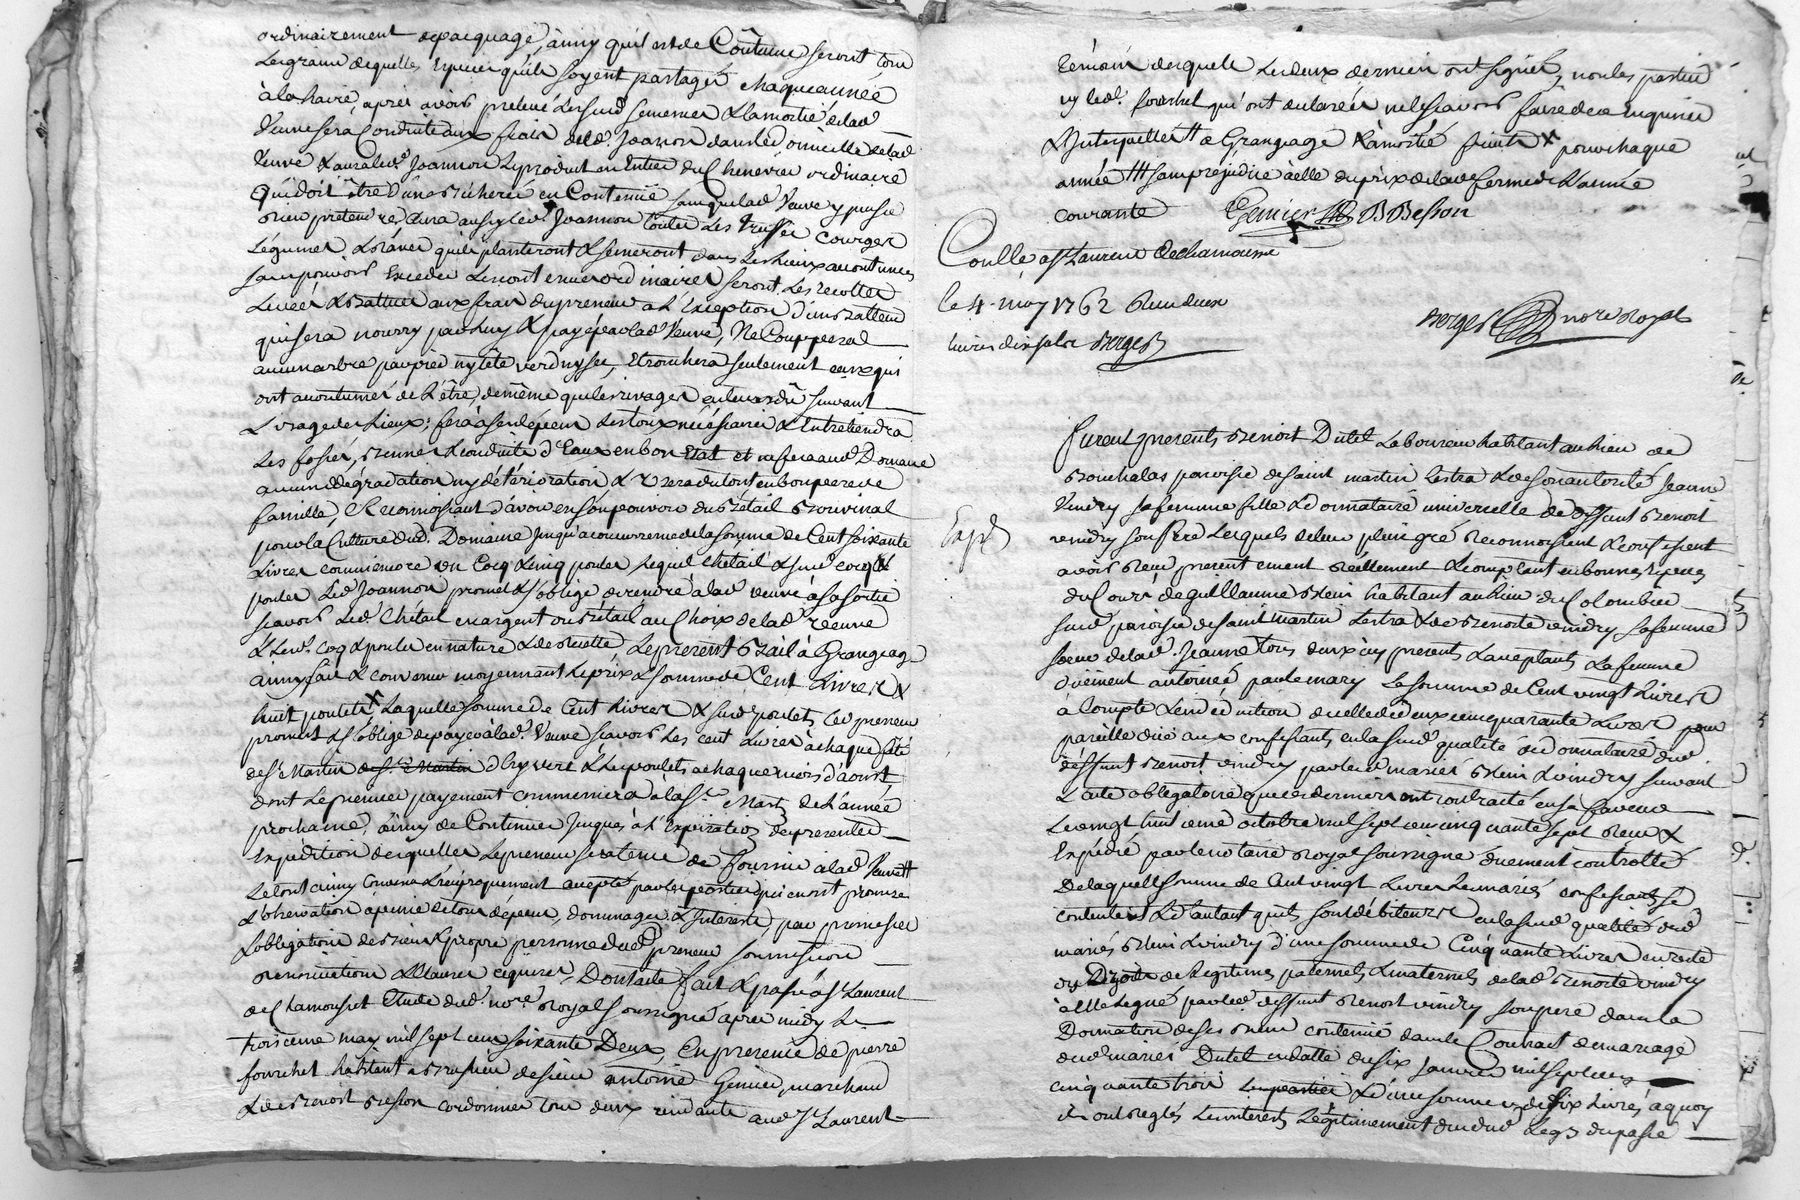 ordinairement depacquagé, ainsy quil est de Coûtume seront tous
Les grains de quelles Especes quils soyent partagés chaque année
à la haire, apres avoir prelevé Les sud semences & la moitié de lad
veuve sera Conduite aux frais dud. Joannon dans led omicille de lad
veuve & aura led. Joannon Le produit en Entier du Chenevier ordinaire
qui doit être d'une Bicherée en Contenüe sans que lad veuve y puisse
rien pretendre, aura aussy led. Joannon toutes Les truffes courges
Légumes & raves quils planteront & semeront dans Les Lieux accoutumés
sans pouvoir Exceder Les contenues ordinaires seront Les recoltes
Levées & battues aux frais du preneur a L'Exception d'un batteur
qui sera nourry par luy & payé par lad veuve, Ne Couppera
aucun arbre par pied ny tête verd ny sec, Ebranchera seulement ceux qui
ont accoutumés de L'être, de même que les rivages suivant
L'usage des Lieux; fera à ses dépens Les Clôtures nécéssaires & Entretiendra
Les fossés, & conduits d'Eaux en bon Etat et ne fera aud Domaine
aucune dégradation ny détérioration & usera du tout en bon pere de
famille, Reconnoissant d'avoir en son pouvoir du Betail Bouvinal
pour la Culture dud. Domaine jusqu'a concurrence de la somme de Cent soixante
Livres comm'encore un Coq & cinq poules Lequel Chétail & sud coq &
poules Led Joannon promet & s'oblige de rendre à lad veuve à sa sortie
scavoir Led Chétail en argent ou Bétail au Choix de lad veuve
& Led. coq & poules en nature & de recette Le present Bail à Grangeage
ainsy fait & convenu moyennant Le prix & somme de Cent Livres &
huit poulets x Laquelle somme de Cent Livres & sud poulets Led preneur
promet & s'oblige de payer à lad. veuve scavoir Les cent Livres à chaque fête
de St Martin de St Martin d'hyvert & Les poulets a chaque mois d'aoust
dont Le premier payement commencera à la St. Martin de L'année
prochaine, ainsy de Continuer jusques à L'Expiration des presentes
Expedition desquelles Le preneur sera tenu de fournir à lad veuve ††
Le tout ainsy Convenu & reciproquement accepté par les parties qui en ont promis
L'observation a peine de tous dépens, dommages & Interests, par promesses
& obligation de biens & propre personne dud preneur soumission
renonciation & clauses requises, Dont acte fait & passé à St Laurent
de Chamousset Etude dud. nore. Royal soussigné apres midy Le
troisieme may mil sept cens soixante Deux, En presence de pierre
fourchet habitant a de sieur antoine Genier, marchand
& de Benoit Besson cordonnier tous deux residants aud St Laurent
témoins desquels Les deux derniers ont signés, non les parties
ny led. fourchet qui ont declarées ne scavoir faire de ce enquises
& Interpellées †† a Grangeage & à moitié fruits x pour chaque
année ††† sans prejudice à elle du prix de lad ferme de L'année
courante
Genier BBesson
Conllé a St Laurent de chamousset
le 4. may 1762 Reçu deux
livres dix sols Berger
Berger nore Royal
furent presents Benoit Dutel Laboureur habitant au lieu de
Bouchalas paroisse de saint martin Lestra & de son autorité Jeanne
Vindry sa femme fille & donnataire universelle de deffunt Benoit
vindry son Pere Lesquels de leur plein gré reconnoissent & confessent
Expd
avoir reçu presentement réellement & comptant en bonnes especes
du Cours de guillaume Blein habitant au lieu du Colombier
sud paroisse de saint Martin Lestra & de Benoite vindry sa femme
soeur de lad. Jeanne tous deux icy presents & acceptants La femme
düement autorisée par le mary La somme de Cent vingt Livres
à Compte & en déduction de celle de deux cens quarante Livres pour
pareille düe aux confessants en la sud qualité de donnataire dud
déffunt Benoit vindry par led mariés Blein & vindry suivant
L'acte obligatoire que ces derniers ont contracté en sa faveur
Le vingt huitieme octobre mil sept cens cinquante sept reçu &
Expédié par le notaire Royal soussigné düement controllé
De laquelle somme de Cent vingt Livres Les mariés confessants se
contentent & d'autant quils sont débiteurs en la sud qualité aud
mariés Blein & vindry d'une somme de Cinquante Livres en reste
de Legitimes paternels & maternels de lad Benoite vindry
à elle Legué par led deffunt Benoit vindry son pere dans la
Donnation de ses biens contenüe dans le Contract de mariage
dud mariés Dutel en datte du six Janvier mil sept cens
cinquante trois & d'une somme de dix Livres à quoy
ils ont reglés Les interets Légitimement dus dud Legs du passé